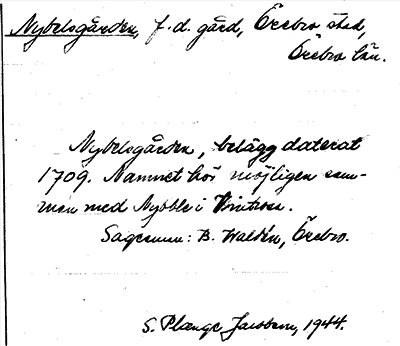 Nybelsgården, f.d. gård, Örebro stad,
Örebro län.
Nybelsgården, belägg daterat
1709. Namnet hör möjligen sam-
man med Nybble i Vintrosa.
Sagesman: B. Waldén, Örebro.
S. Plænge Jacobson, 1944.